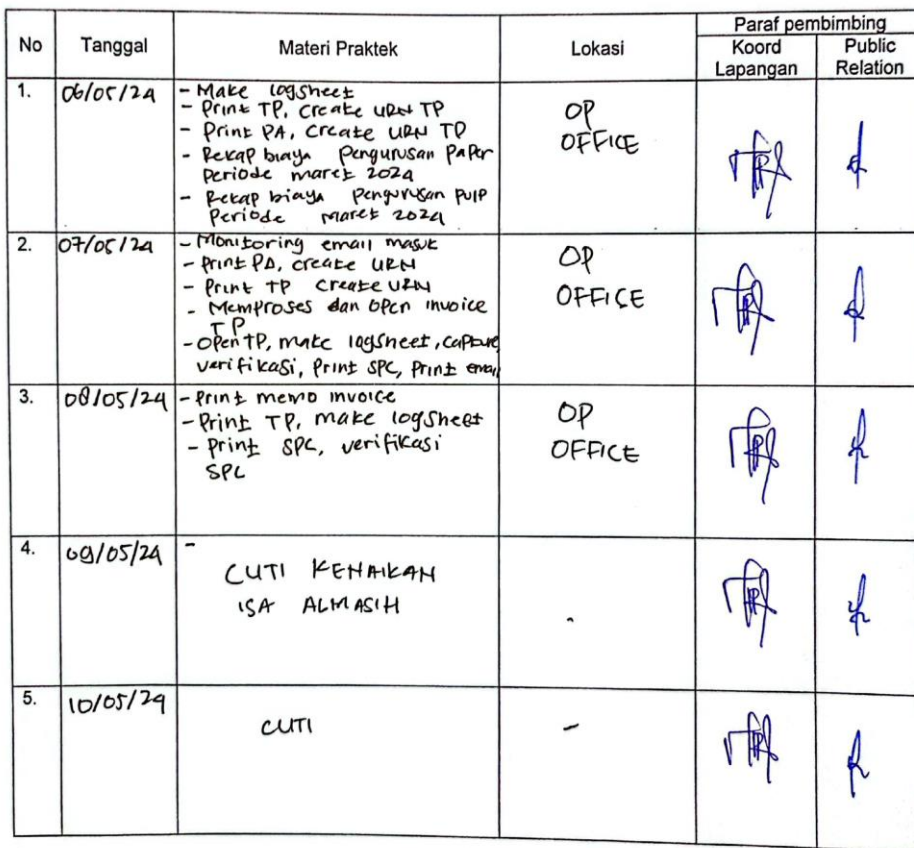 No Tanggal Materi Praktek Lokasi Paraf pembimbing
Koord Lapangan Public Relation
1. 06/05/24
- Make logsheet
- Print TP, Create URN TP
- Print PA, Create URN TP
- Rekap biaya Pengurusan Paper
Periode maret 2024
- Rekap biaya Pengurusan PulP
Periode maret 2024
OP
OFFICE
2. 07/05/24
- Monitoring email masuk
- Print PA, create URN
- Print TP Create URN
- Memproses dan open invoice
TP
- Open TP, make logsheet, capture,
verifikasi, Print SPC, Print email
OP
OFFICE
3. 08/05/24
- Print memo invoice
- Print TP, make logsheet
- Print SPC, verifikasi
SPC
OP
OFFICE
4. 09/05/24 -
CUTI KENAIKAN
ISA ALMASIH
-
5. 10/05/24
CUTI
-